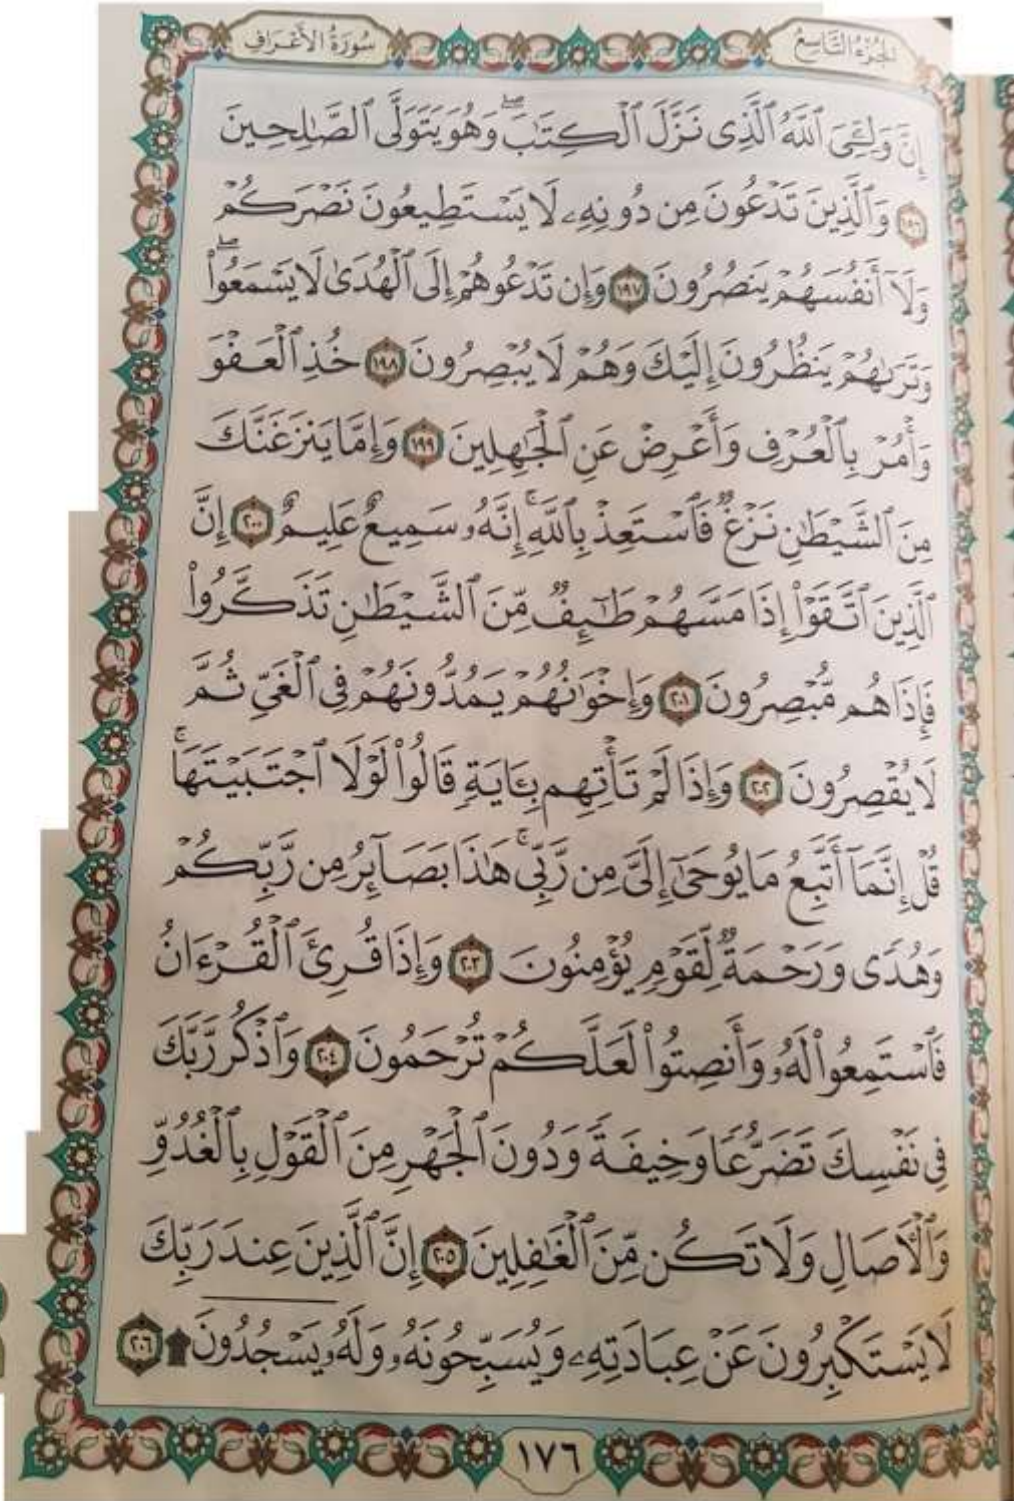 الجُزْءُ التَّاسِعُ
سُورَةُ الأَعْرَافِ
إِنَّ وَلِـِّۧيَ ٱللَّهُ ٱلَّذِى نَزَّلَ ٱلْكِتَـٰبَۖ وَهُوَ يَتَوَلَّى ٱلصَّـٰلِحِينَ
١٩٦ وَٱلَّذِينَ تَدْعُونَ مِن دُونِهِۦ لَا يَسْتَطِيعُونَ نَصْرَكُمْ
وَلَآ أَنفُسَهُمْ يَنصُرُونَ ١٩٧ وَإِن تَدْعُوهُمْ إِلَى ٱلْهُدَىٰ لَا يَسْمَعُوا۟ۖ
وَتَرَىٰهُمْ يَنظُرُونَ إِلَيْكَ وَهُمْ لَا يُبْصِرُونَ ١٩٨ خُذِ ٱلْعَفْوَ
وَأْمُرْ بِٱلْعُرْفِ وَأَعْرِضْ عَنِ ٱلْجَـٰهِلِينَ ١٩٩ وَإِمَّا يَنزَغَنَّكَ
مِنَ ٱلشَّيْطَـٰنِ نَزْغٌ فَٱسْتَعِذْ بِٱللَّهِۚ إِنَّهُۥ سَمِيعٌ عَلِيمٌ ٢٠٠ إِنَّ
ٱلَّذِينَ ٱتَّقَوْا۟ إِذَا مَسَّهُمْ طَـٰٓئِفٌ مِّنَ ٱلشَّيْطَـٰنِ تَذَكَّرُوا۟
فَإِذَا هُم مُّبْصِرُونَ ٢٠١ وَإِخْوَٰنُهُمْ يَمُدُّونَهُمْ فِى ٱلْغَىِّ ثُمَّ
لَا يُقْصِرُونَ ٢٠٢ وَإِذَا لَمْ تَأْتِهِم بِـَٔايَةٍ قَالُوا۟ لَوْلَا ٱجْتَبَيْتَهَاۚ
قُلْ إِنَّمَآ أَتَّبِعُ مَا يُوحَىٰٓ إِلَىَّ مِن رَّبِّىۚ هَـٰذَا بَصَآئِرُ مِن رَّبِّكُمْ
وَهُدًى وَرَحْمَةٌ لِّقَوْمٍ يُؤْمِنُونَ ٢٠٣ وَإِذَا قُرِئَ ٱلْقُرْءَانُ
فَٱسْتَمِعُوا۟ لَهُۥ وَأَنصِتُوا۟ لَعَلَّكُمْ تُرْحَمُونَ ٢٠٤ وَٱذْكُر رَّبَّكَ
فِى نَفْسِكَ تَضَرُّعًا وَخِيفَةً وَدُونَ ٱلْجَهْرِ مِنَ ٱلْقَوْلِ بِٱلْغُدُوِّ
وَٱلْـَٔاصَالِ وَلَا تَكُن مِّنَ ٱلْغَـٰفِلِينَ ٢٠٥ إِنَّ ٱلَّذِينَ عِندَ رَبِّكَ
لَا يَسْتَكْبِرُونَ عَنْ عِبَادَتِهِۦ وَيُسَبِّحُونَهُۥ وَلَهُۥ يَسْجُدُونَ ۩ ٢٠٦
١٧٦